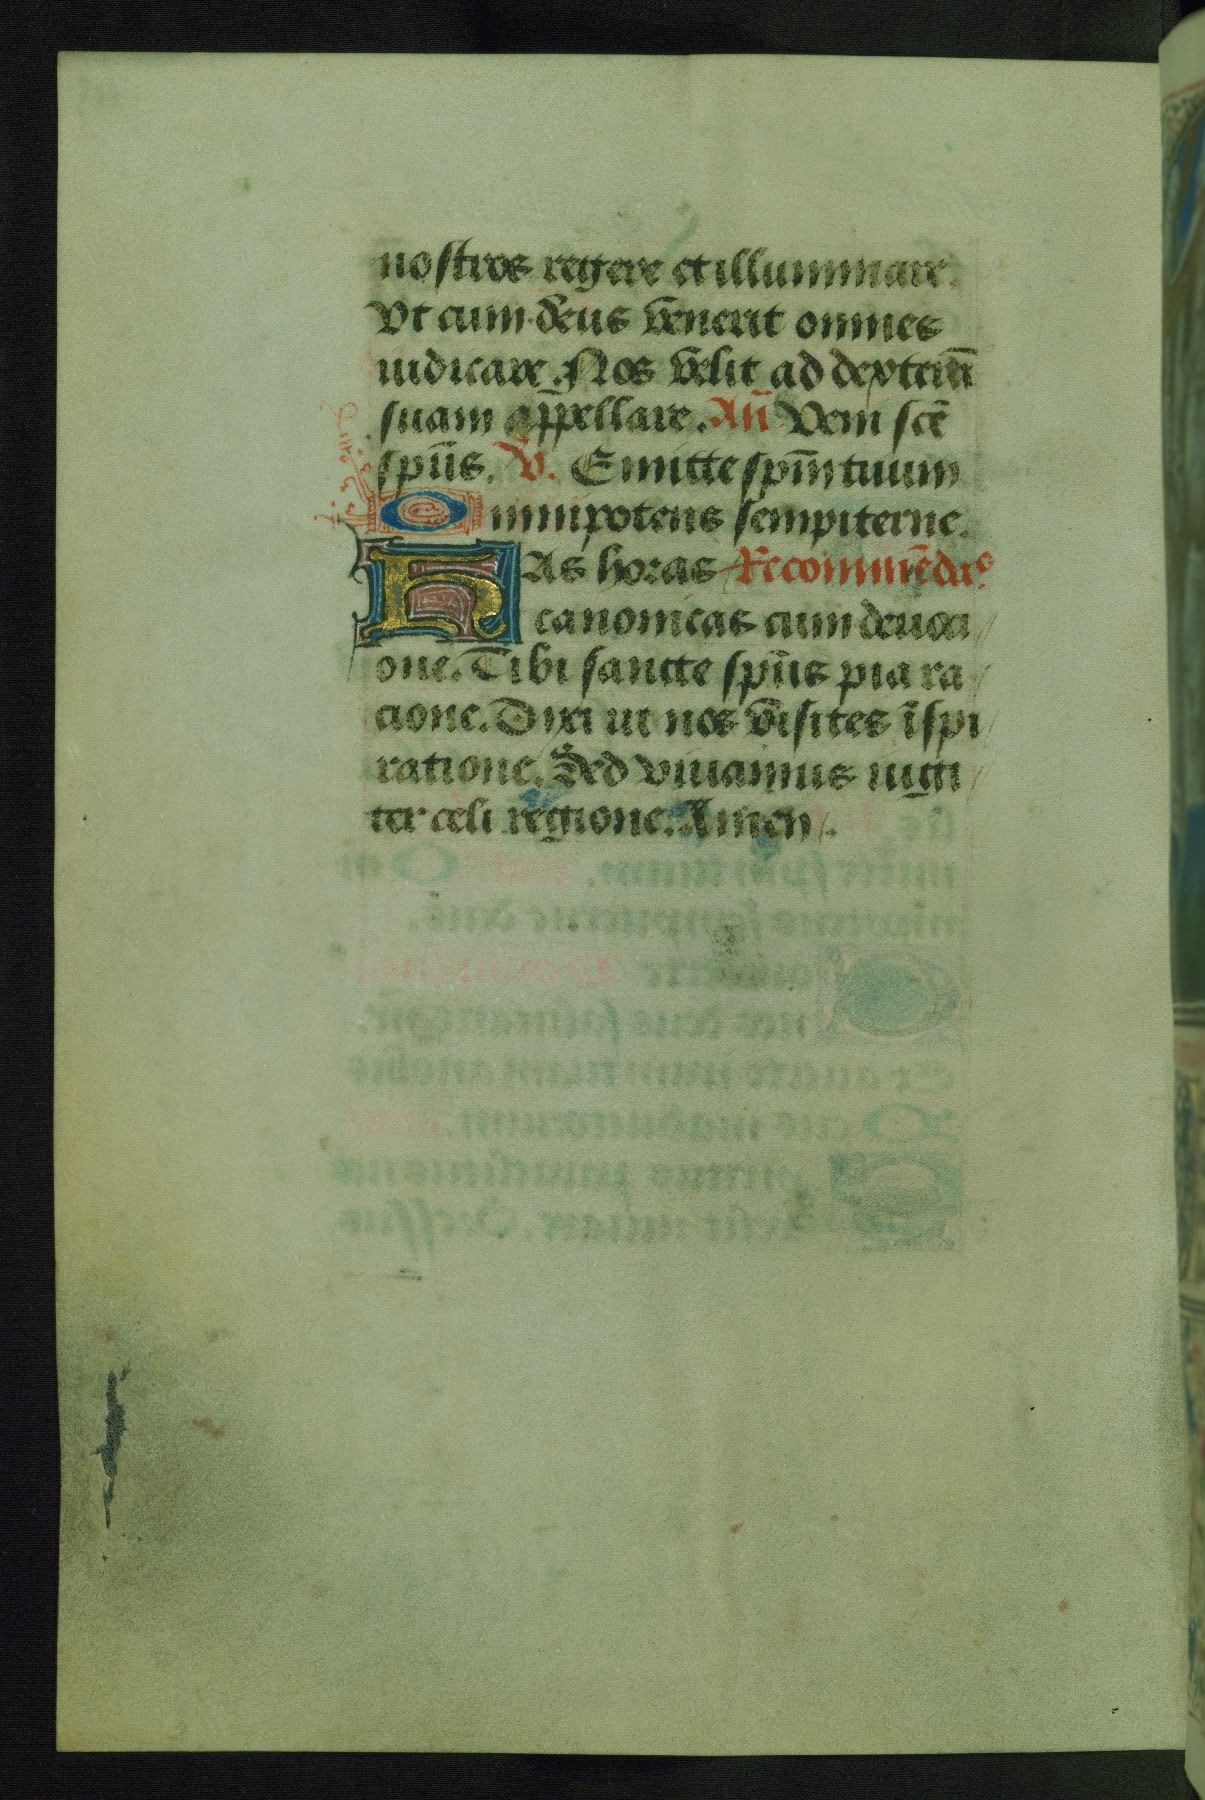 nostros regere et illuminare.
Vt cum deus venerit omnes
iudicare. Nos velit ad dexterā
suam appellare. Añ Veni scē
spūs. V. Emitte spm̄ tuum
Omnipotens sempiterne.
Has horas Recommēdac̄
canonicas cum deuoci
one. Tibi sancte spūs pia ra
cione. Dixi ut nos visites īspi
ratione. Ad viuamus iugi
ter celi regione. Amen.